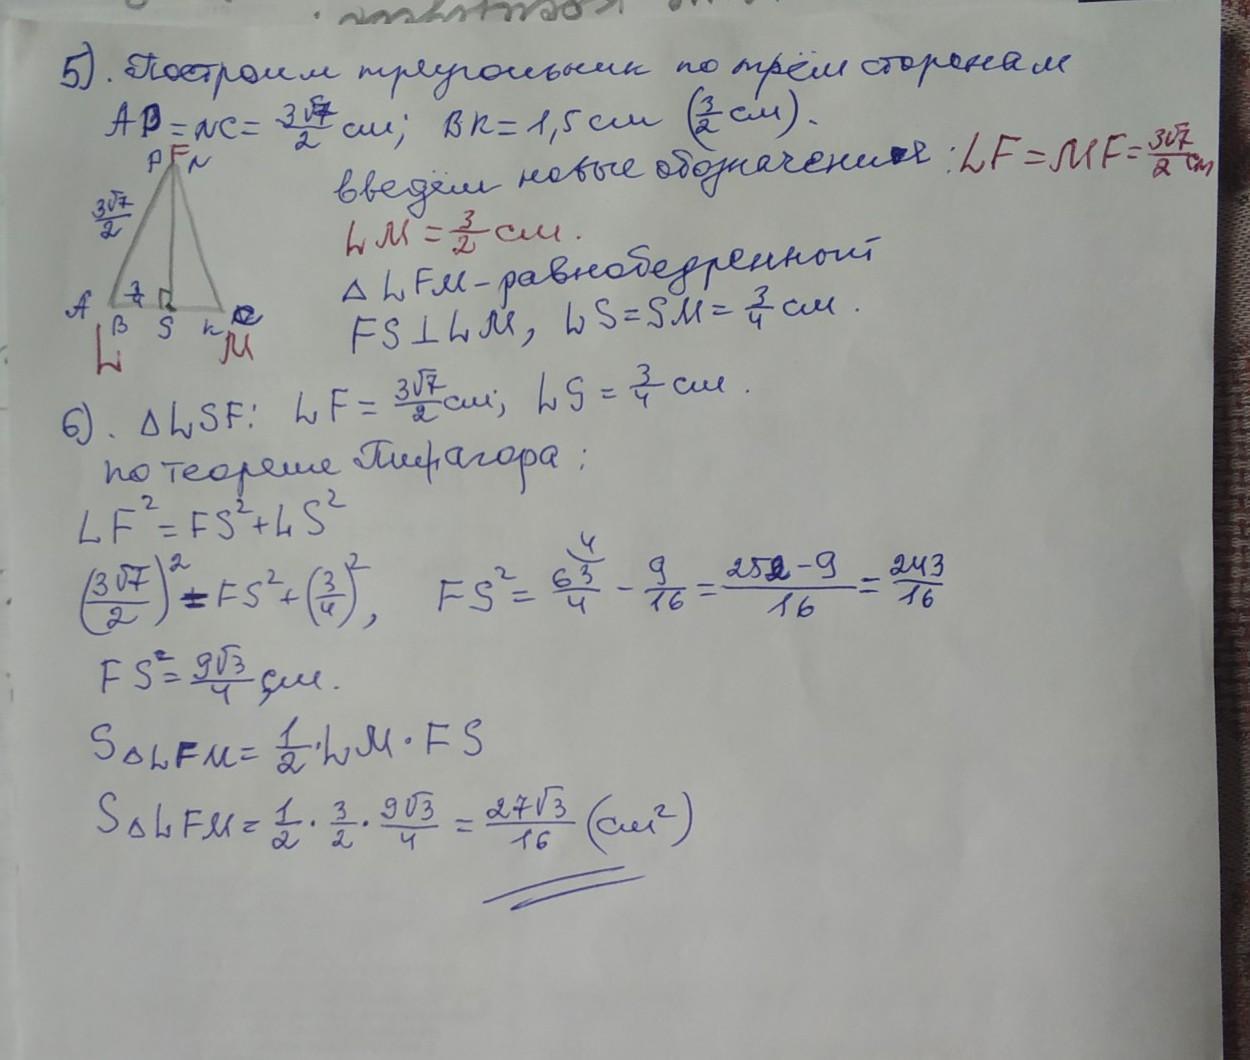 5). Построим треугольник по трём сторонам
AP = NC = 3√7/2 см; BK = 1,5 см (3/2 см).
P F N
введём новые обозначения: LF = MF = 3√7/2 см
3√7/2
LM = 3/2 см.
△LFM - равнобедренный
A 3/4 C
B S K
L M
FS ⊥ LM, LS = SM = 3/4 см.
6). △LSF: LF = 3√7/2 см; LS = 3/4 см.
по теореме Пифагора:
LF² = FS² + LS²
(3√7/2)² = FS² + (3/4)², FS² = 63/4 ⁴ - 9/16 = 252 - 9/16 = 243/16
FS² = 9√3/4 см.
S△LFM = 1/2 · LM · FS
S△LFM = 1/2 · 3/2 · 9√3/4 = 27√3/16 (см²)